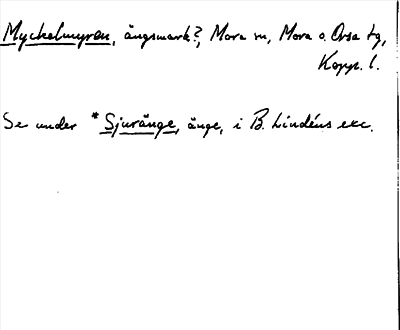 Myckelmyren, ängsmark?, Mora sn, Mora o. Orsa tg,
Kopp. l.
Se under *Sjuränge, änge, i B. Lindéns exc.